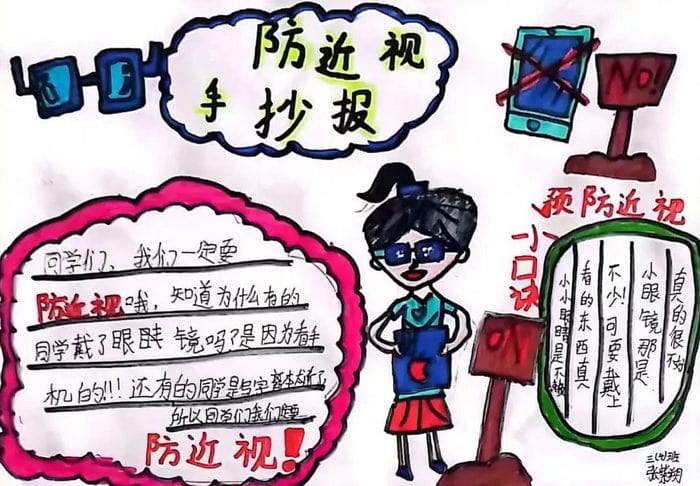 防近视
手抄报
NO!
预防近视
小口诀
同学们，我们一定要
防近视哦，知道为什么有的
同学戴了眼睛镜吗？是因为看手
机的!!!还有的同学是写字
所以同学们我们
防近视！
NO
真的很不
小眼镜那是
不少！可要戴上
看的东西真
小小眼睛是不
三(4)班